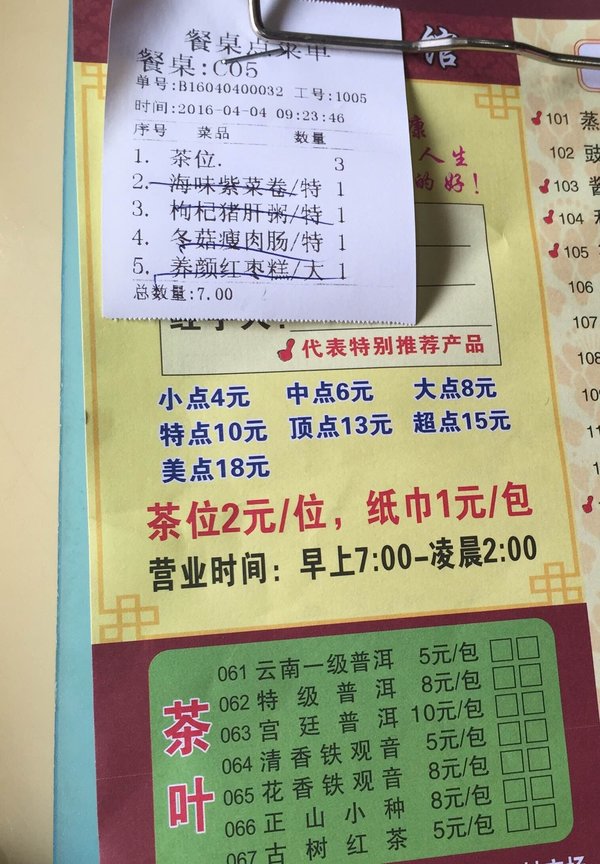 餐桌点菜单
餐桌:C05
单号:B16040400032 工号:1005
时间:2016-04-04 09:23:46
序号 菜品 数量
1. 茶位. 3
2. 海味紫菜卷/特 1
3. 枸杞猪肝粥/特 1
4. 冬菇瘦肉肠/特 1
5. 养颜红枣糕/大 1
总数量:7.00
康
人生
的好!
代表特别推荐产品
小点4元 中点6元 大点8元
特点10元 顶点13元 超点15元
美点18元
茶位2元/位,纸巾1元/包
营业时间:早上7:00-凌晨2:00
茶叶
061 云南一级普洱 5元/包
062 特级普洱 8元/包
063 宫廷普洱 10元/包
064 清香铁观音 5元/包
065 花香铁观音 8元/包
066 正山小种 8元/包
067 古树红茶 5元/包
101 蒸
102 豉
103 酱
104
105
106
107
108
109